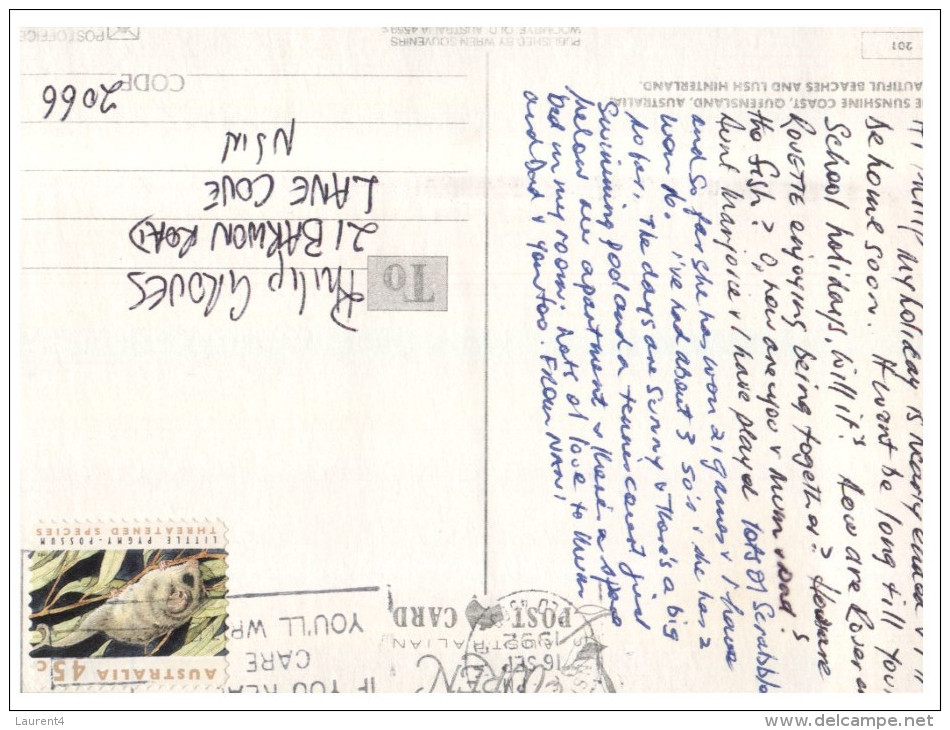 my holiday is nearly ended &
be home soon. It wont be long till you
School holidays, will it? How are Roger
ROVETTE enjoying being together? How are
the fish? O, how are you & mum & Dad?
Aunt Marjorie & I have played lots of Scrabble
and so far she has won 21 games & I have
won 16. i've had about 3 50's & she has 2
so far. The days are Sunny & there's a big
Swimming pool and a tennis court just
below our apartment & there's a spare
bed in my room. hots of love to Mum
and Dad & you too. From NANI
E SUNSHINE COAST, QUEENSLAND, AUSTRALIA.
AUTIFUL BEACHES AND LUSH HINTERLAND.
201
PUBLISHED BY WREN SOUVENIRS
WOOMBYE QLD. AUSTRALIA 4559
AUSTRALIAN
POST CARD
16 SEP
1992
IF YOU REA
CARE
YOU'LL WR
AUSTRALIA 45c
LITTLE PYGMY-POSSUM
THREATENED SPECIES
To
PHILIP GROVES
21 BARWON ROAD
LANE COVE
NSW
CODE
2066
POST OFFICE
Laurent4
www.delcampe.net